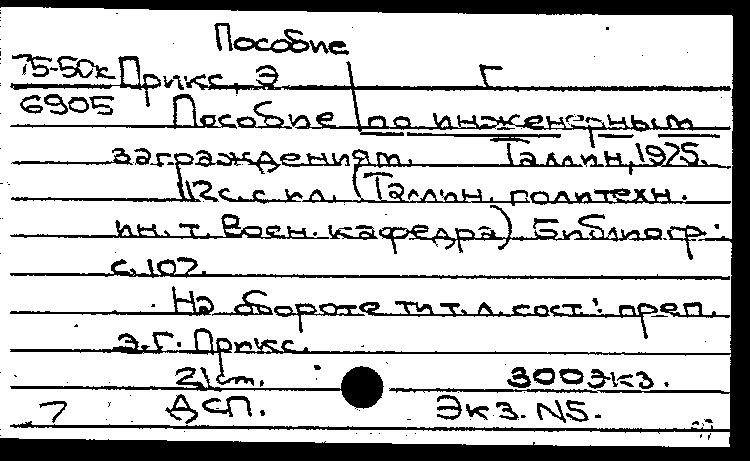 Пособие
75-50к Прикс, Э Г
6905 Пособие по инженерным
заграждениям. Таллин, 1975.
112с. с ил. (Таллин. политехн.
ин. т. Воен. кафедра). Библиогр:
с. 107.
На обороте тит. л. сост: преп.
Э. Г. Прикс.
21 cm. 300экз.
7 ДСП. Экз. N5.